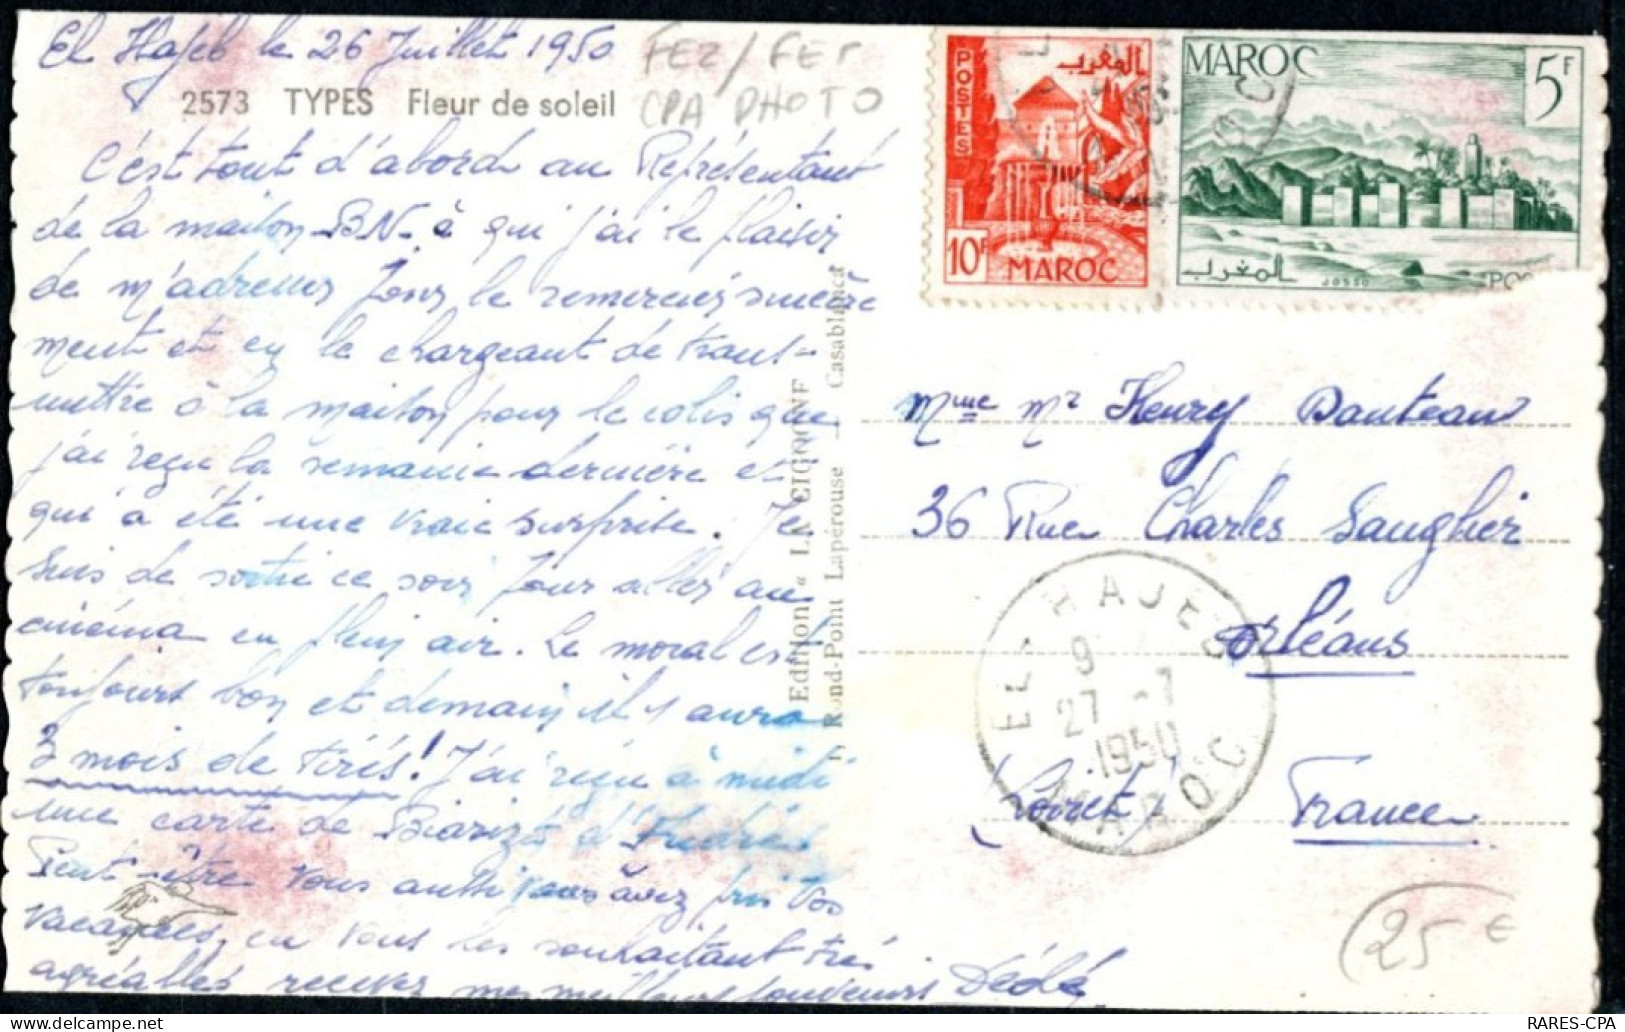 El Hajeb le 26 Juillet 1950
FEZ / FES
CPA PHOTO
2573 TYPES Fleur de soleil
C'est tout d'abord au Représentant
de la maison B.N. à qui j'ai le plaisir
de m'adresser pour le remercier sincère
ment et en le chargeant de trans-
mettre à la maison pour le colis que
j'ai reçu la semaine dernière et
qui a été une vraie surprise. Je
suis de sortie ce soir pour aller au
cinéma en plein air. Le moral est
toujours bon et demain il y aura
3 mois de tirés! J'ai reçu à midi
une carte de Biarizt d'
Peut-être vous aussi vous avez pris vos
vacances, en vous les souhaitant très
agréables recevez mes meilleurs souvenirs Dédé
Edition « LA CIGOGNE
Rond-Point Lapérouse _ Casablanca
POSTES
المغرب
10F MAROC
MAROC 5F
المغرب
JOSSO
PO
Mme Mr Henry Dauteau
36 Rue Charles Sanglier
Orléans
(Loiret) France
EL-HAJEB
9
27 -7
1950
MAROC
25 €
RARES-CPA